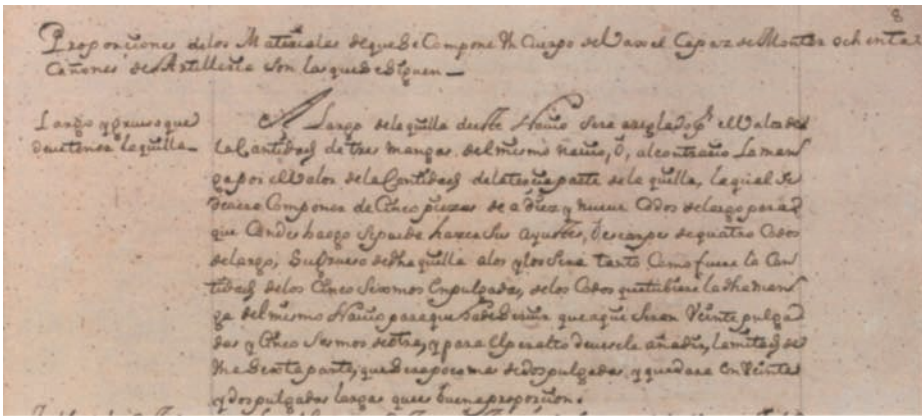 8
Proporciones delos Materiales de que se Compone Un Cuerpo de Vaxel Capaz de Montar ochenta
Cañones de Artilleria son las que se siguen
Largo y grueso que
deve tener la quilla
Largo dela quilla deste Navio sera arreglado pr. el Valor de
la Cantidad de tres mangas del mismo navio, ó, al contrario La man
ga por el Valor dela Cantidad dela tercia parte dela quilla, la qual se
devera Componer de Cinco piezas de a diez y nueve Codos de largo para
que se pueda hazer sus ajustes, escarpe de quatro Codos
de largo, Su Grueso de dha quilla sera tanto Como fuere la Can
tidad delos Cinco sesmos en pulgadas, de los Codos que tubiere la dha man
ga del mismo Navio que aqui seran Veinte pulga
das y Cinco sesmos de otra, y para el peralto devesele añadir, la mitad de
Una Sexta parte, que sera poco mas de dos pulgadas y quedara en Veinte
y dos pulgadas largas que es buena proporcion.